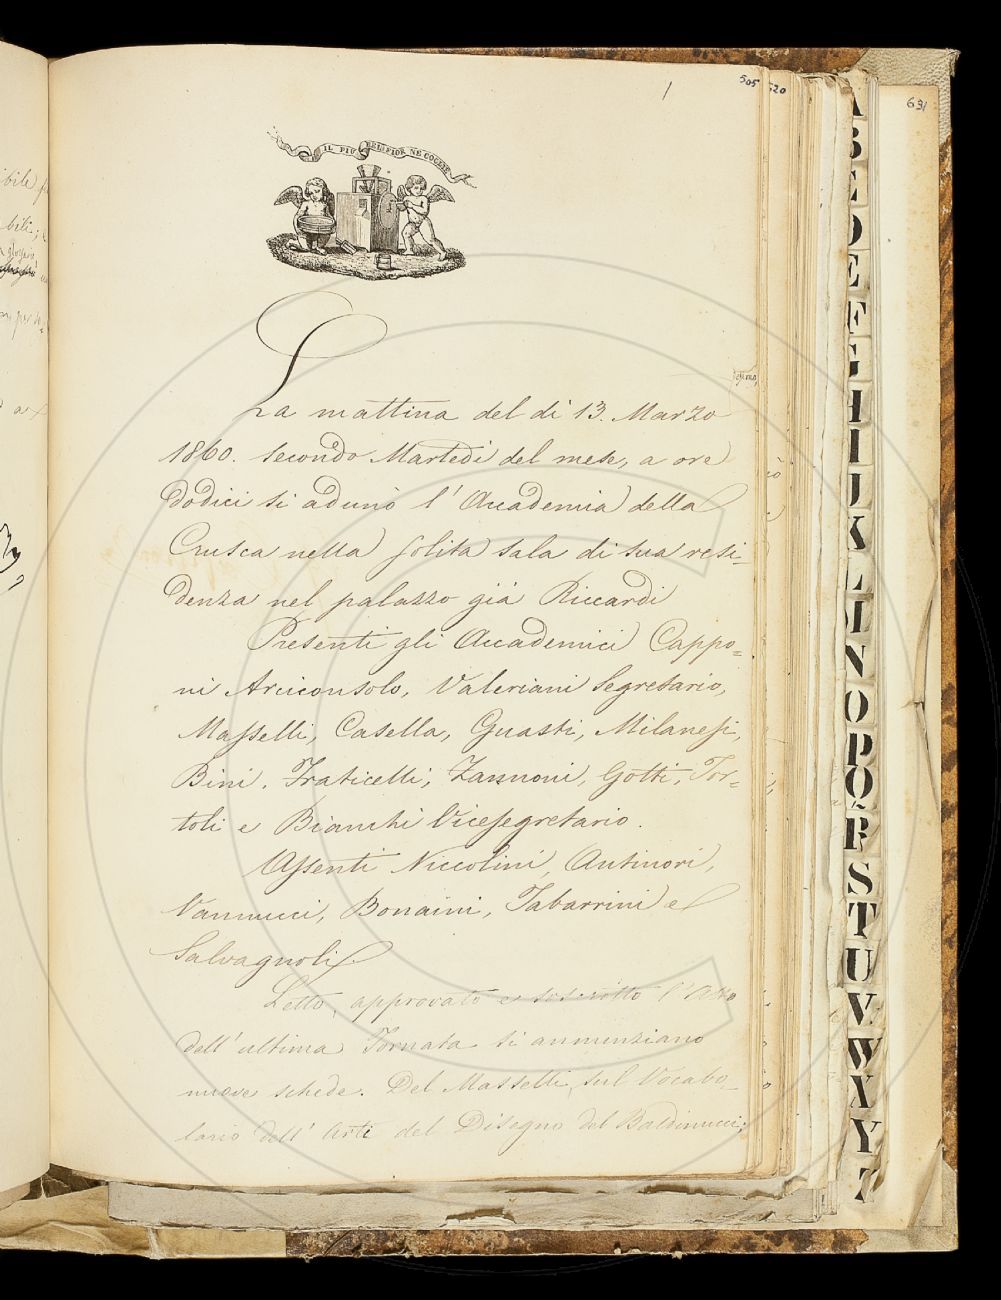 505
520
631
IL PIÙ BEL FIOR NE COGLIE
La mattina del dì 13. Marzo
1860. secondo Martedì del mese, a ore
dodici si adunò l'Accademia della
Crusca nella solita sala di sua resi-
denza nel palazzo già Riccardi
Presenti gli Accademici Cappo=
ni Arciconsolo, Valeriani Segretario,
Masselli, Casella, Guasti, Milanesi,
Bini, Fraticelli, Zannoni, Gotti, Tor=
toli e Bianchi Vicesegretario.
Assenti Niccolini, Antinori,
Vannucci, Bonaini, Tabarrini e
Salvagnoli.
Letto, approvato e soscritto l'Atto
dell'ultima Tornata si annunziano
nuove schede. Del Masselli, sul Vocabo-
lario dell'Arti del Disegno del Baldinucci;
A
B
C
D
E
F
G
H
I
J
K
L
M
N
O
P
Q
R
S
T
U
V
W
X
Y
Z